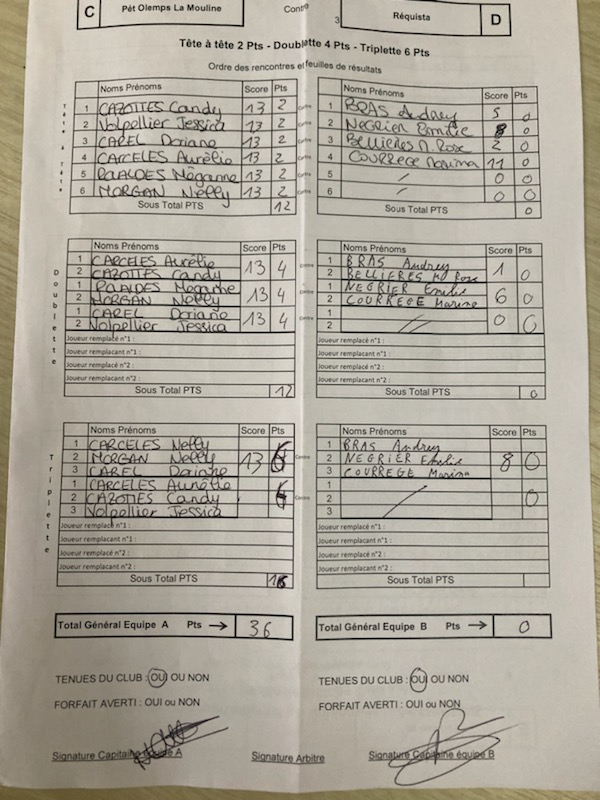 C Pét Olemps La Mouline Contre 3 Réquista D
Tête à tête 2 Pts - Doublette 4 Pts - Triplette 6 Pts
Ordre des rencontres et feuilles de résultats
Tête à Tête
Noms Prénoms Score Pts
1 CAZOTTES Candy 13 2
2 Volpellier Jessica 13 2
3 CAREL Doriane 13 2
4 CARCELES Aurélie 13 2
5 RAALDES Méganne 13 2
6 MORGAN Nelly 13 2
Sous Total PTS 12
Contre
Noms Prénoms Score Pts
1 BRAS Audrey 5 0
2 NEGRIER Emilie 8 0
3 Bellieres M. Rose 2 0
4 COURREGE Marina 11 0
5 / 0 0
6 / 0 0
Sous Total PTS 0
Doublette
Noms Prénoms Score Pts
1 CARCELES Aurélie 13 4
2 CAZOTTES Candy
1 RAALDES Méganne 13 4
2 MORGAN Nelly
1 CAREL Doriane 13 4
2 Volpellier Jessica
Joueur remplacé n°1 :
Joueur remplaçant n°1 :
Joueur remplacé n°2 :
Joueur remplaçant n°2 :
Sous Total PTS 12
Contre
Noms Prénoms Score Pts
1 BRAS Audrey 1 0
2 BELLIERES M Rose
1 NEGRIER Emilie 6 0
2 COURREGE Marina
1 // 0 0
2
Joueur remplacé n°1 :
Joueur remplaçant n°1 :
Joueur remplacé n°2 :
Joueur remplaçant n°2 :
Sous Total PTS 0
Triplette
Noms Prénoms Score Pts
1 CARCELES Nelly
2 MORGAN Nelly 13 6
3 CAREL Doriane
1 CARCELES Aurélie
2 CAZOTTES Candy 6
3 Volpellier Jessica
Joueur remplacé n°1 :
Joueur remplaçant n°1 :
Joueur remplacé n°2 :
Joueur remplaçant n°2 :
Sous Total PTS
Contre
Noms Prénoms Score Pts
1 BRAS Audrey
2 NEGRIER Emilie 8 0
3 COURREGE Marina
1
2 / 0
3
Joueur remplacé n°1 :
Joueur remplaçant n°1 :
Joueur remplacé n°2 :
Joueur remplaçant n°2 :
Sous Total PTS
Total Général Equipe A Pts → 36
Total Général Equipe B Pts → 0
TENUES DU CLUB : OUI OU NON
FORFAIT AVERTI : OUI ou NON
TENUES DU CLUB : OUI OU NON
FORFAIT AVERTI : OUI ou NON
Signature Capitaine équipe A
Signature Arbitre
Signature Capitaine équipe B